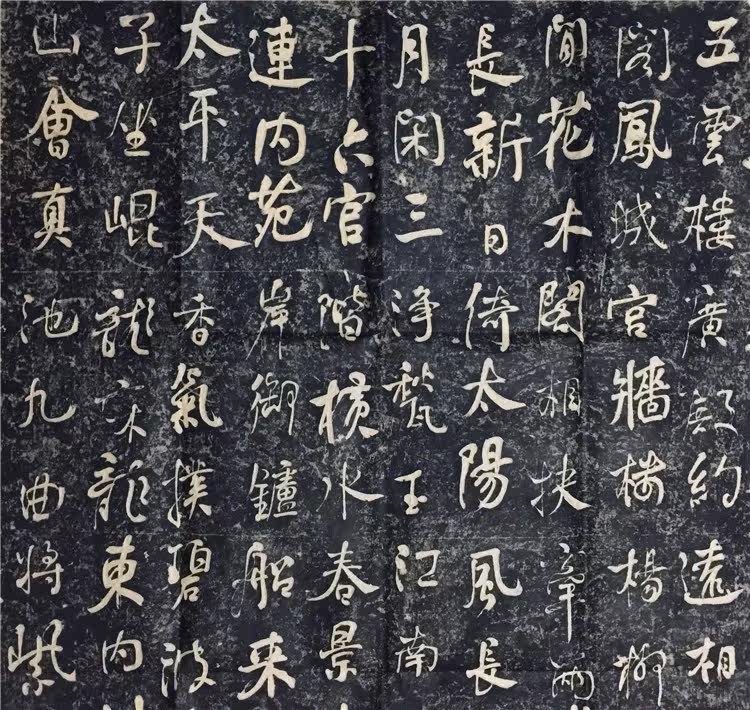 五雲樓廣殿約遠相
閣鳳城宮牆樓楊柳
間花木閣相扶牽兩
長新日倚太陽風長
月閑三淨甃玉江南
十六宮階橫水春景
連內苑岸御鑪船来
太平天香氣撲碧波
子坐崐龍床龍東內
山會真池九曲將紫